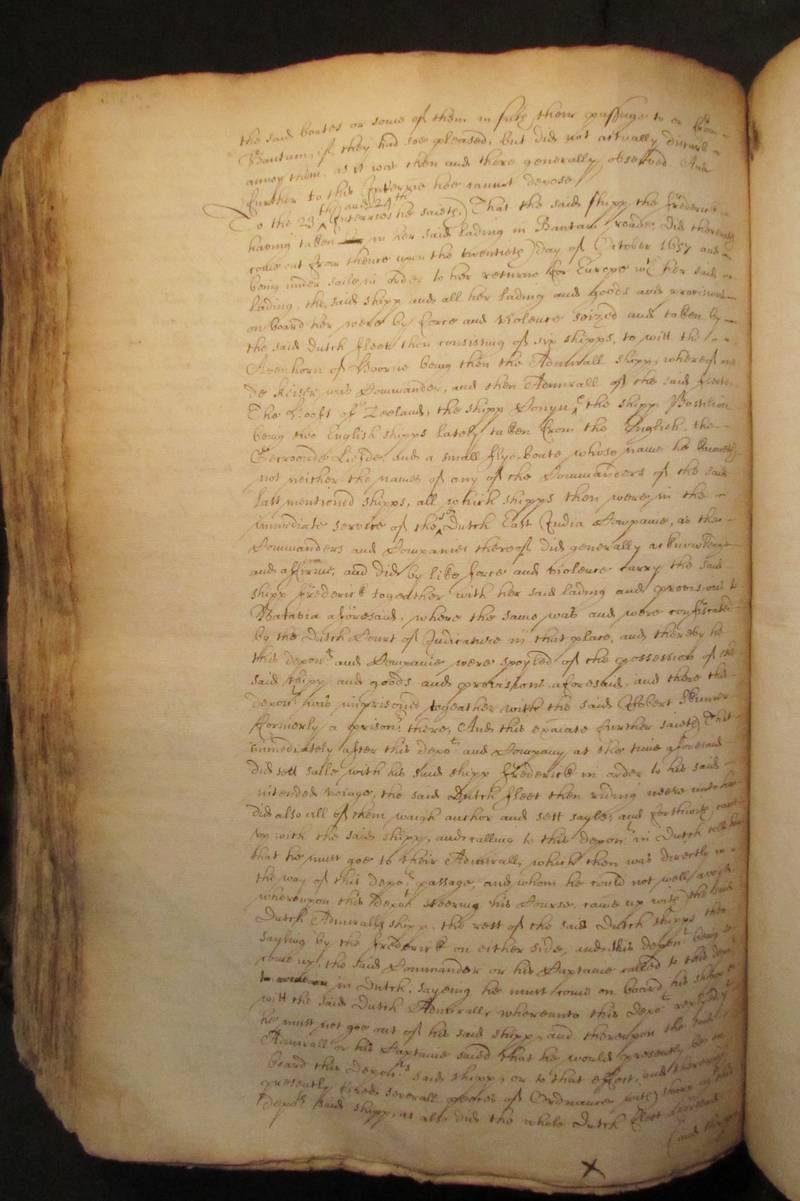 the said boates or some of them in such their passage to or from
Bantam, if they had soe pleased, but did not actually disturbe
annoy them, as it was then and there generally observed. And
further to this Interrie hee cannot depose
To the 23th and 24th Interries he saieth That the said shipp the Frederick
having taken in her said lading in Bantam roade, did thereupon
come out from thence upon the twentieth day of October 1657 and
being under saile in order to her returne for Europe with her said
lading, the said shipp and all her lading and goods and provisions
on board her were by force and violence seized and taken by
the said Dutch fleet then consisting of six shipps, to witt the
Avenhorn of Hoorne being then the Admirall shipp, whereof
de Keiser was Commander, and then Admirall of the said fleete
The Hooft of Zeeland, the shipp Conyn, the shipp Postilion
being two English shipps lately taken from the English, the
Gecroonde Liefde, and a small flye-boate whose name he knoweth
not neither the names of any of the Commanders of the said
last mentioned shipps, all which shipps then were in the
immediate service of the sd Dutch East India Companie, as the
Commanders and Companies thereof did generally acknowledge
and affirme, and did by like force and violence carry the said
shipp Frederick togeather with her said lading and provisions to
Batavia aforesaid, where the same was and were confiscated
by the Dutch Court of Judicature in that place, and thereby he
this depont and Companie were spoyled of the possession of the
said shipp and goods and provisions aforesaid, and there this
depont was imprisoned togeather with the said Robert Skinner
formerly a prisoner there, And this examinate further saieth That
immediately after this depont and Company at the time aforesaid
did sett saile with his said shipp Frederick in order to his said
intended voiage, the said Dutch fleet then riding neere unto him
did also all of them waigh anchor and sett sayle, and forthwith came
up with the said shipp, and calling to this depont in Dutch told him
that he must goe to their Admirall, which then was directly in
the way of this deponts passage, and whom he could not well avoyd
whereupon this depont steering his Course, came up with the said
Dutch Admiralls shipp, the rest of the said Dutch shipps then
sayling by the Frederick on either side, and this depont being soe
come up, the said Commander or his Captaine called to this depont
in Dutch, sayeing he must come on board his shipp
with the said Dutch Admirall, whereunto this depont replyed
he must not goe out of his said shipp, and thereupon the said
Admirall or his Captaine saied that he would presently be on
board this deponts said shipp, or to that effect, and thereupon
presently fired severall peeces of Ordnance with shott at this
deponts said shipp, as also did the whole Dutch fleet